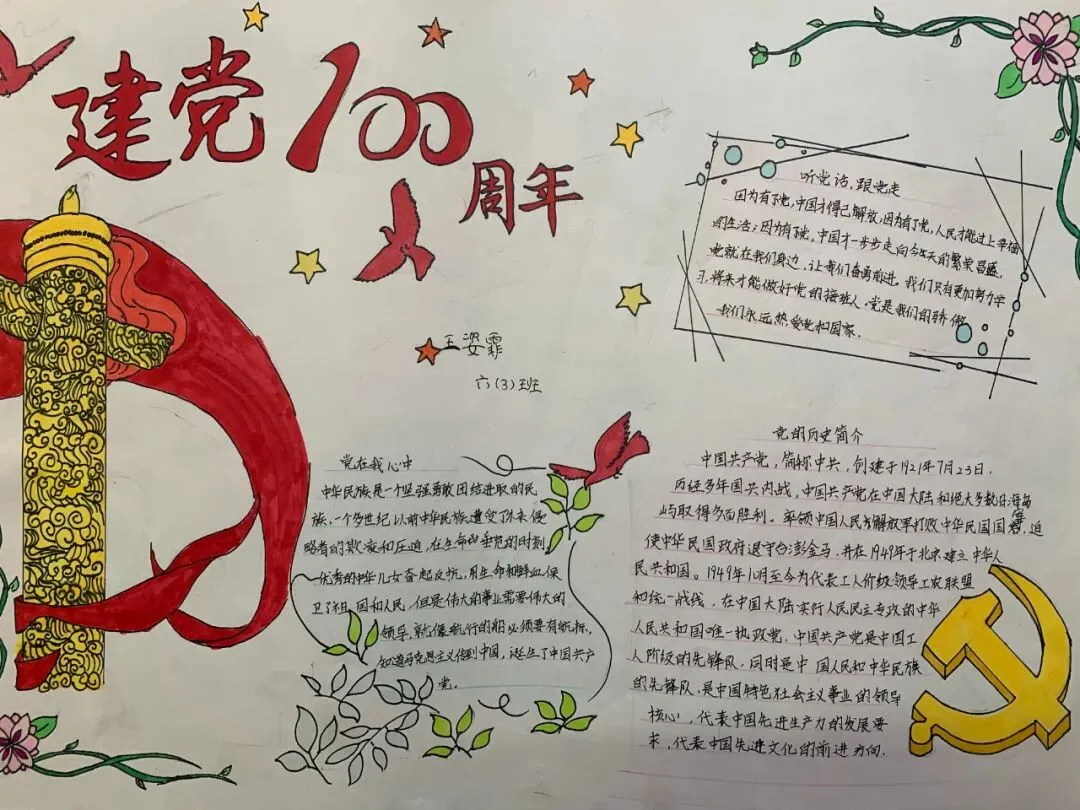 建党100
周年
王姿霏
六(3)班
听党话,跟党走
因为有了党,中国才得已解放,因为有了党,人民才能过上幸福
的生活;因为有了党,中国才一步步走向今天的繁荣昌盛,
党就在我们身边,让我们奋勇前进,我们只有更加努力学
习,将来才能做好党的接班人,党是我们的骄傲
我们永远热爱党和国家.
党在我心中
中华民族是一个坚强勇敢团结进取的民
族,一个多世纪以前中华民族遭受了外来侵
略者的欺凌和压迫,在生命垂危的时刻,
一优秀的中华儿女奋起反抗,用生命和鲜血保
卫了祖国和人民,但是伟大的事业需要伟大的
领导,就像航行的船必须要有航标,
知道马克思主义传到中国,诞生了中国共产
党.
党的历史简介
中国共产党,简称中共,创建于1921年7月23日,
历经多年国共内战,中国共产党在中国大陆和绝大多数沿海岛
屿取得多面胜利。率领中国人民解放军打败中华民国国军,迫
使中华民国政府退守台澎金马,并在1949年于北京建立中华人
民共和国。1949年10月至今为代表工人阶级领导工农联盟
和统一战线,在中国大陆实行人民民主专政的中华
人民共和国唯一执政党.中国共产党是中国工
人阶级的先锋队.同时是中国人民和中华民族
的先锋队,是中国特色社会主义事业的领导
核心,代表中国先进生产力的发展要
求,代表中国先进文化的前进方向.